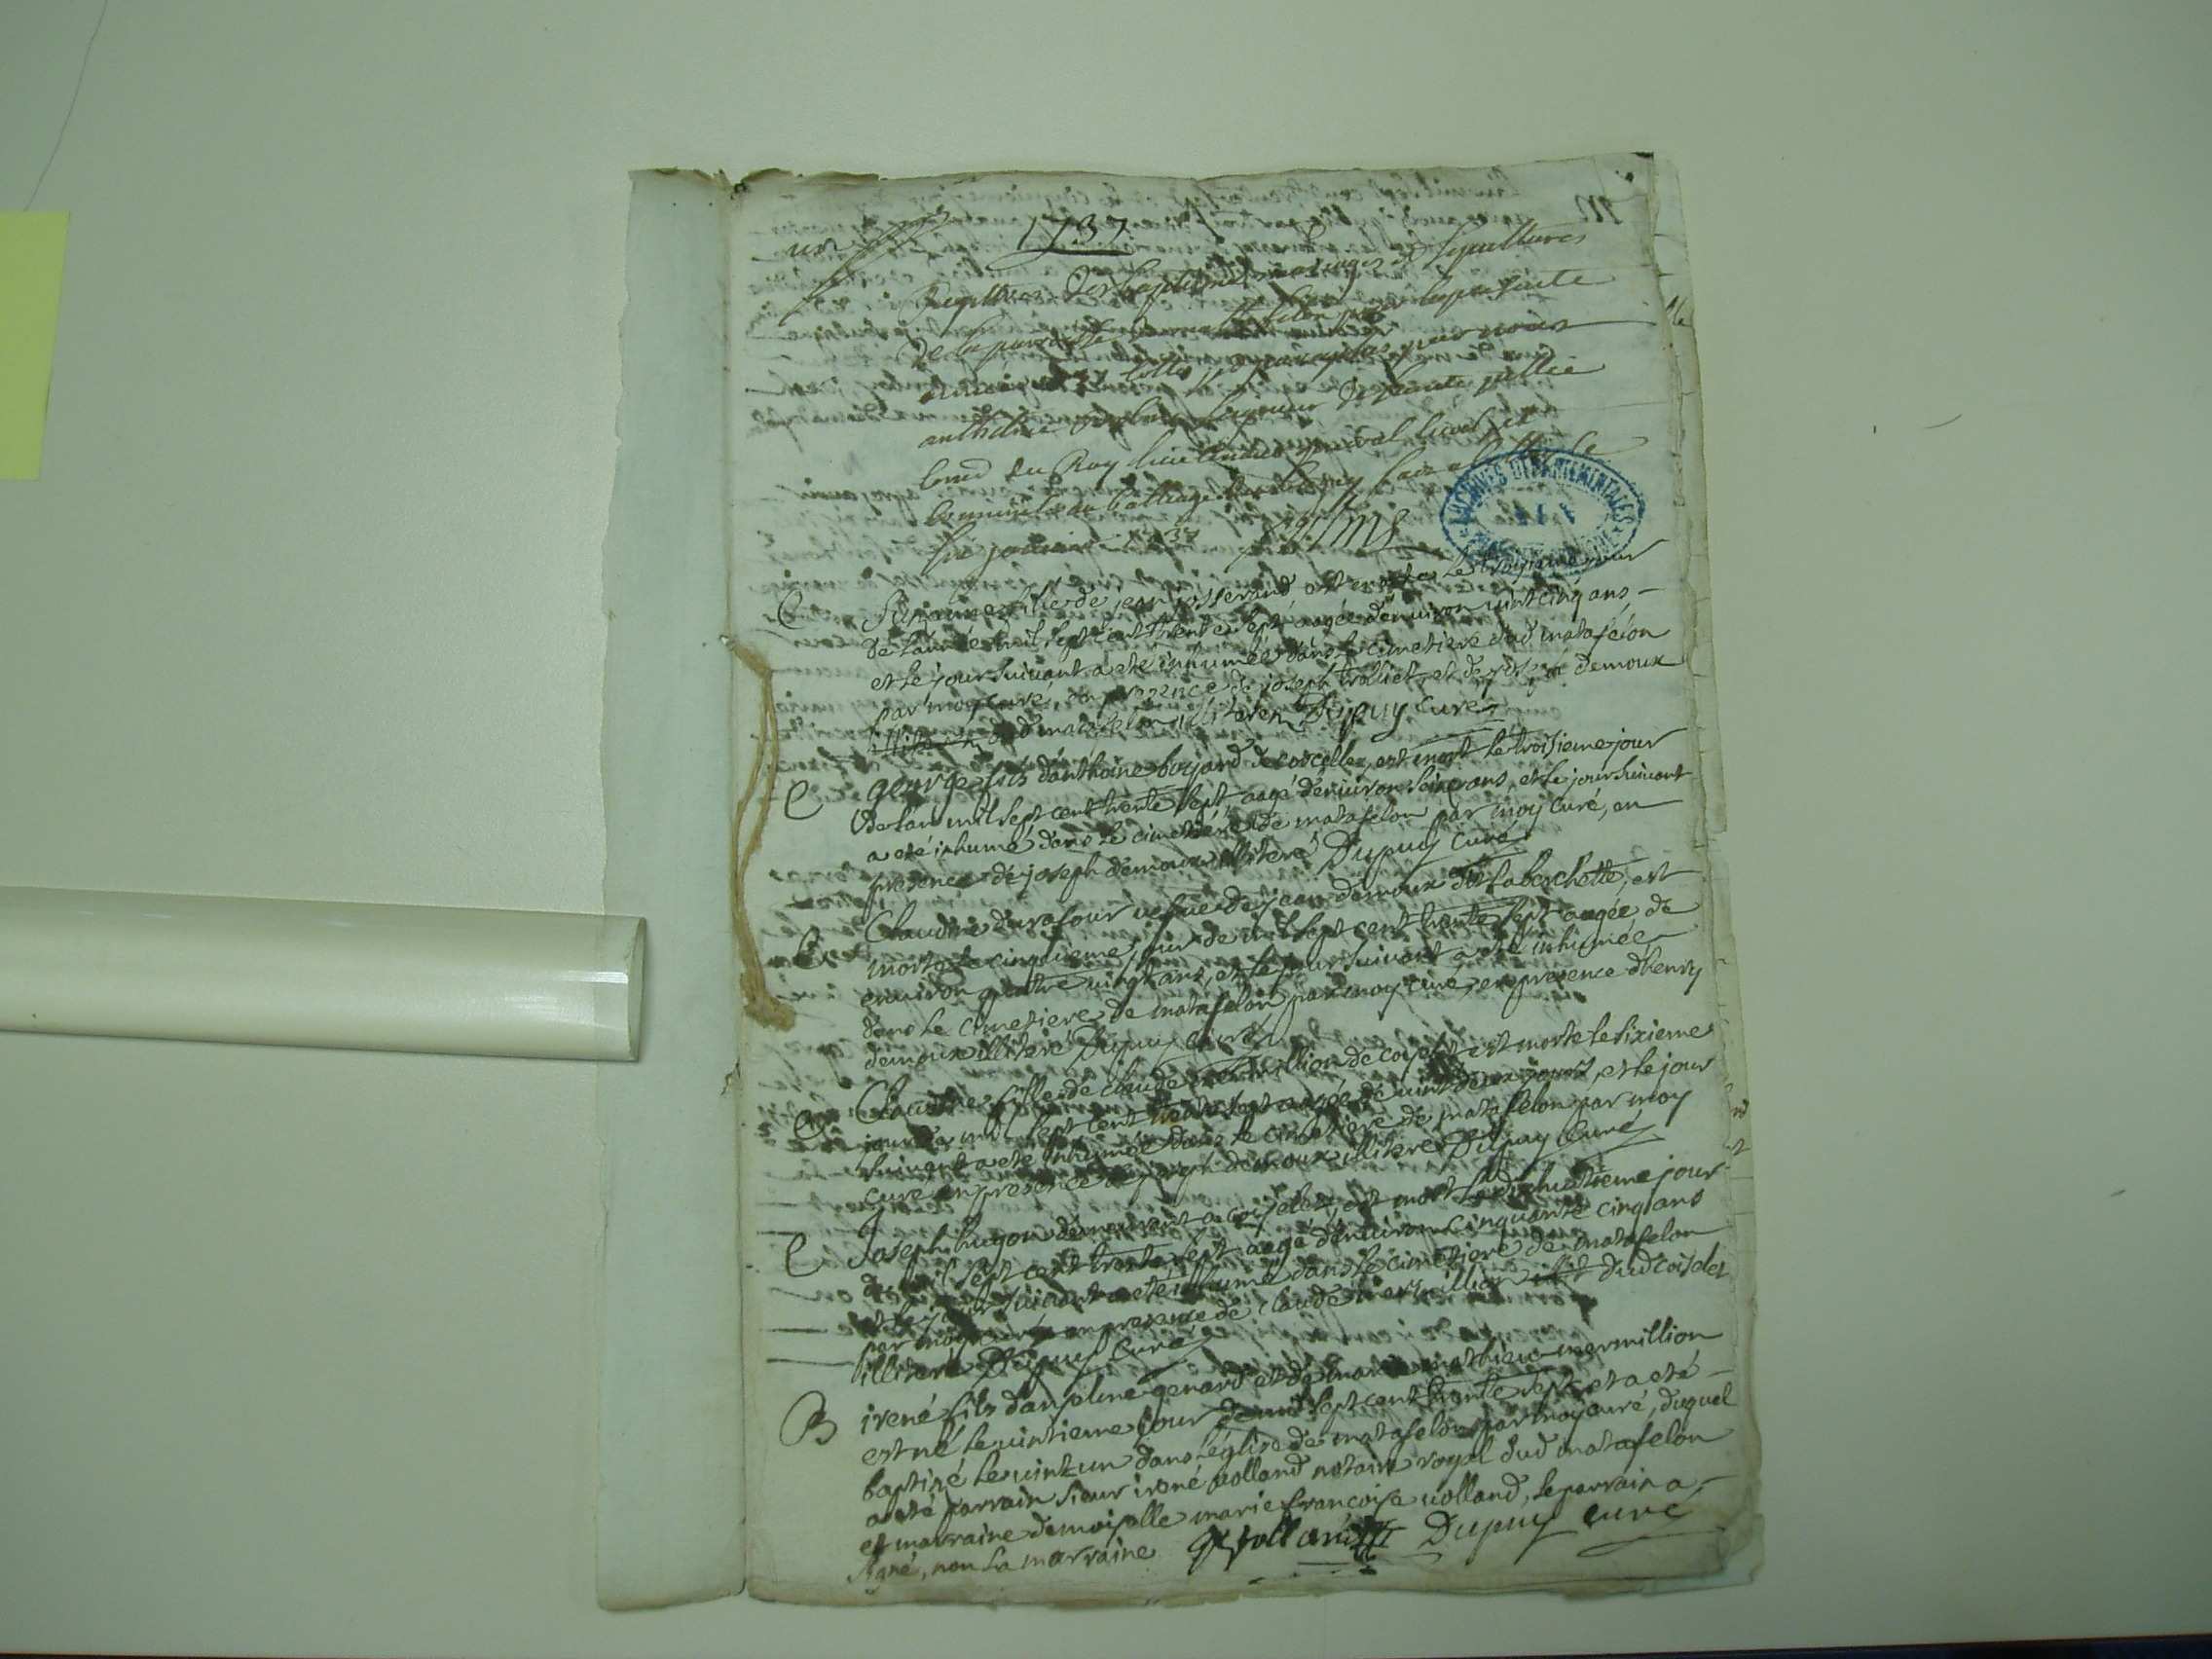 un
1737
Registres des baptemes mariages et sepultures
de la parroisse de mattafelon pour la presente
année 1737 cottés et paraphés par nous
anthelme seigneur de
Cons.er du Roy lieutenant general civil et
criminel au balliage de
six janvier 1737
ARCHIVES DEPARTEMENTALES AIN
fille de jean josserand est morte le troisieme jour
de l'année mil sept cent trente sept, aagée d'environ vint cinq ans
et le jour suivant a eté inhumée dans le cimetiere dud matafelon
par moy curé, en presence de joseph et de demoux
dud matafelon illiteréz Dupuy Curé
C george fils d'anthoine boyard de corcelles, est mort le troisieme jour
de l'an mil sept cent trente sept, aagé d'environ seize ans, et le jour suivant
a eté inhumé dans le cimetiere de matafelon par moy curé, en
presence de joseph demoux illiteré Dupuy Curé
C Claudine durafour vefve de jean demoux dit la bochette, est
morte le cinquieme jour de mil sept cent trente sept aagée de
environ quatre vingt ans, et le jour suivant a eté inhumée
dans le cimetiere de matafelon par moy curé, en presence d'henry
demoux illiteré Dupuy Curé
C Claudine fille de claude mermillion de coyselet est morte le sixieme
jour de mil sept cent trente sept aagée de vint deux jours, et le jour
suivant a eté inhumée dans le cimetiere de matafelon par moy
curé en presence de joseph demoux illiteré Dupuy Curé
C Joseph hugon demeurant a coiselet, est mort le dixhuitieme jour
de mil sept cent trente sept aagé d'environ cinquante cinq ans
et le jour suivant a eté inhumé dans le cimetiere de matafelon
par moy curé en presence de claude mermillion dud coiselet
illiteré Dupuy Curé
B irené fils d'anselme genard et de marie mathieu mermillion
est né le vintieme jour de mil sept cent trente sept et a eté
baptizé le vint un dans l'église de matafelon par moy curé, duquel
a eté parrain sieur irené volland notaire royal dud matafelon
et marraine demoiselle marie francoise volland, le parrain a
signé, non la marraine Volland Dupuy curé